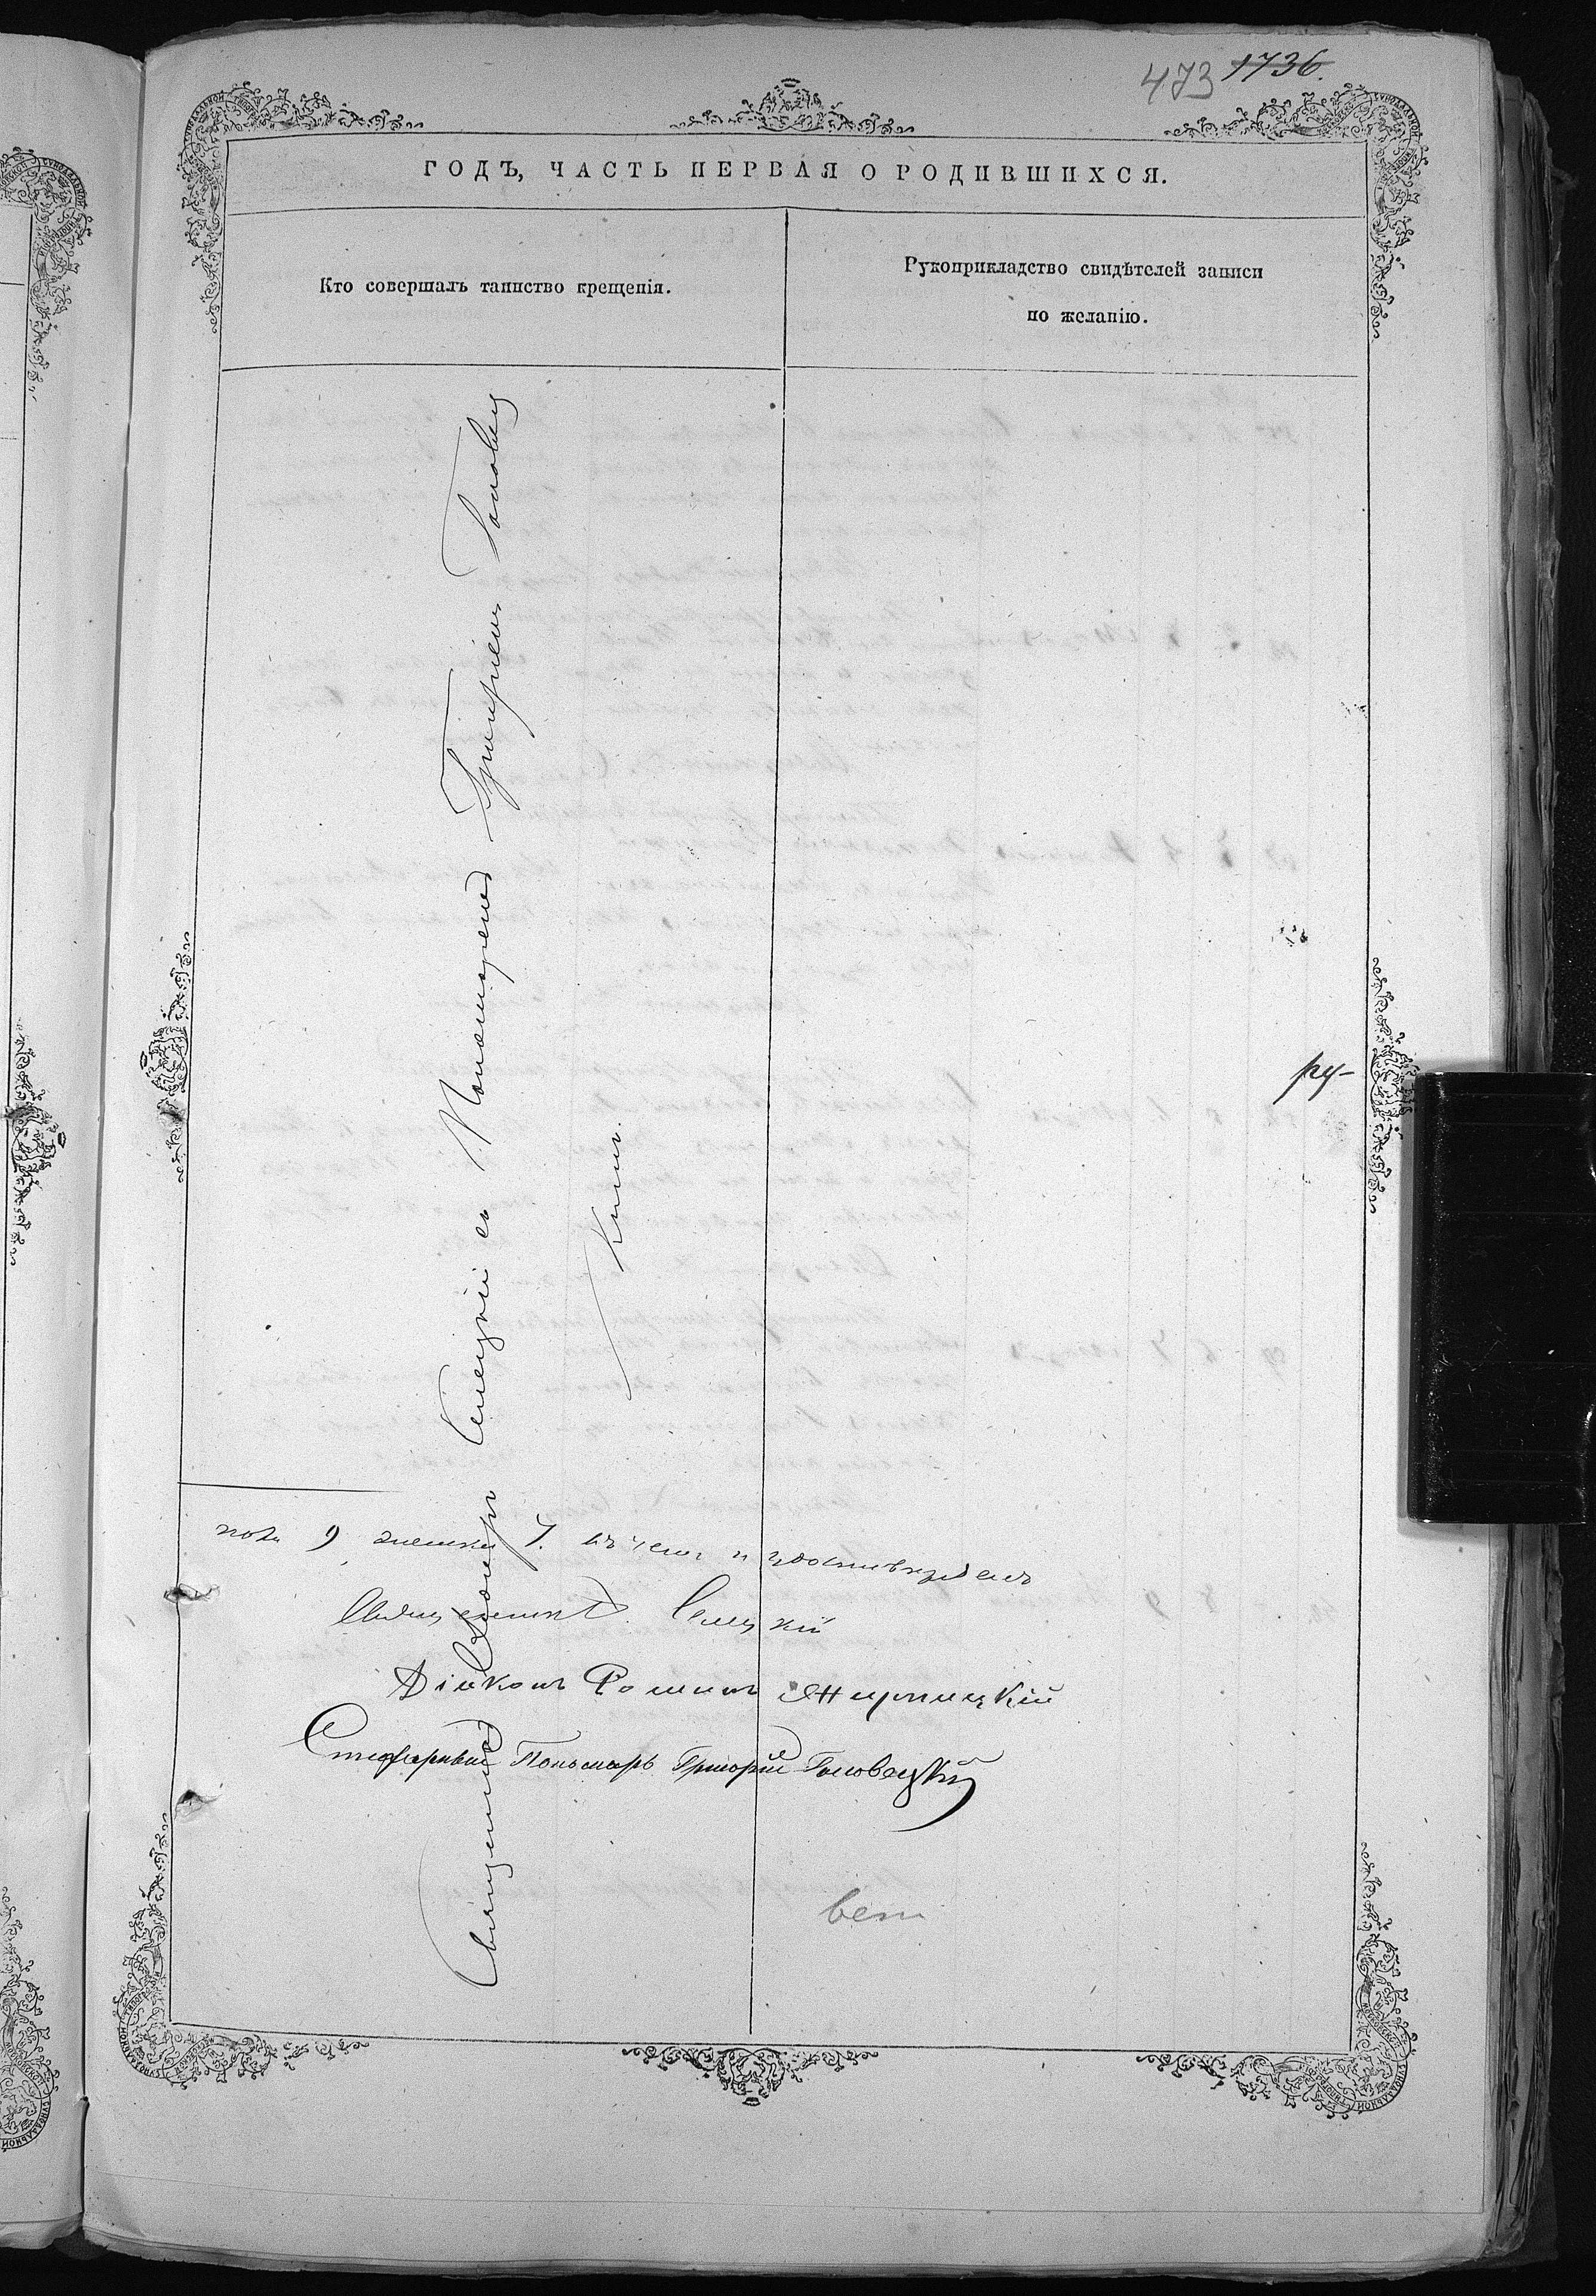 473 1736.
ГОДЪ, ЧАСТЬ ПЕРВАЯ О РОДИВШИХСЯ.
Кто совершалъ таинство крещенія.
Рукоприкладство свидѣтелей записи
по желанію.
Священникъ Селецкій съ Пономаремъ Григоріемъ Головец
кимъ.
ру-
9 женска 7. итого и удостовѣряемъ
Священникъ Селецкій
Діаконъ Романъ Жирницкій
Стихарный Пономарь Григорій Головецкій